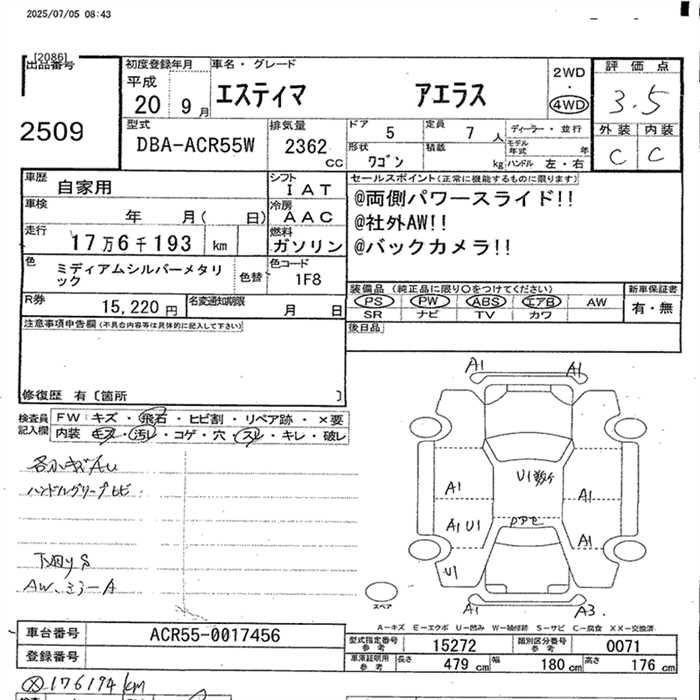 2025/07/05 08:43
[2086]
出品番号
2509
初度登録年月
平成
20 9月
車名・グレード
エスティマ アエラス
2WD
・
4WD
評価点
3.5
外装 内装
C C
型式
DBA-ACR55W
排気量
2362
cc
ドア 5
定員 7 人
形状 ワゴン
積載 kg
ディーラー・並行
モデル年式 年
ハンドル 左・右
車歴
自家用
車検
年 月( 日)
走行
17万6千193 km
色
ミディアムシルバーメタリック
色替
シフト
IAT
冷房
AAC
燃料
ガソリン
色コード
1F8
セールスポイント(正常に機能するものに限ります)
@両側パワースライド!!
@社外AW!!
@バックカメラ!!
R券
15,220 円
名変通知期限
月 日
装備品 (純正品に限り○をつけてください)
PS PW ABS エアB AW
SR ナビ TV カワ
新車保証書
有・無
後日品
注意事項申告欄(不具合内容等は具体的に記入して下さい)
修復歴 有〔箇所 〕
検査員
記入欄
FW キズ・飛石・ヒビ割・リペア跡・×要
内装 キズ・汚レ・コゲ・穴・スレ・キレ・破レ
各小キズAU
ハンドルグリープヒビ
下回りS
AW、ミラーA
A1 A1
U1
A1 A1
A1 U1 A1
U1
A1 A3.
スペア
A−キズ E−エクボ U−凹み W−補修跡 S−サビ C−腐食 XX−交換済
車台番号 ACR55-0017456
登録番号
型式指定番号
参考
15272
類別区分番号
参考
0071
車庫証明用
参考
長さ 479 cm 幅 180 cm 高さ 176 cm
176194km